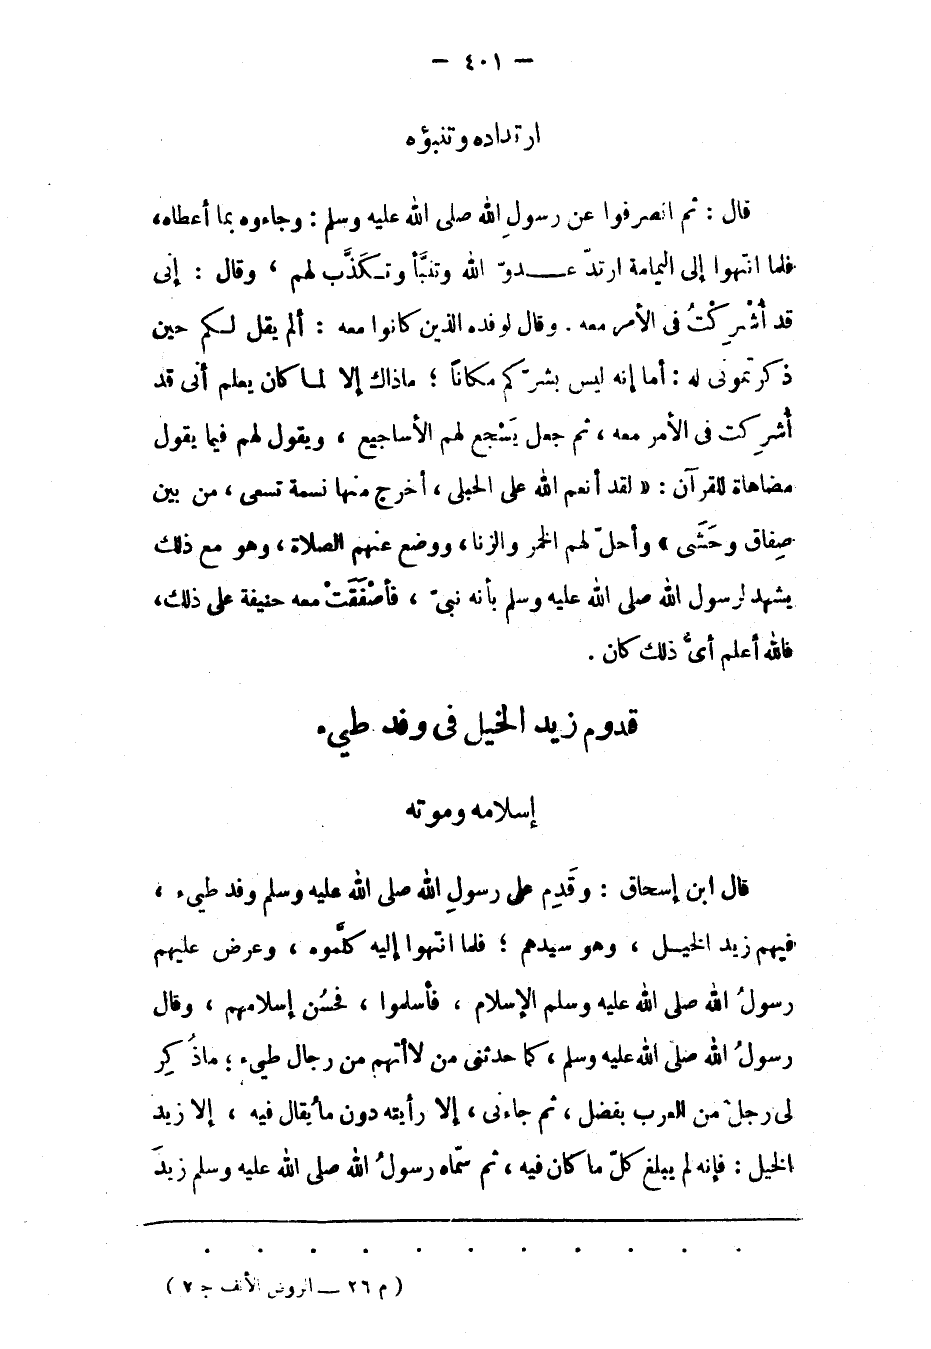 — ٤٠١ —
ارتداده وتنبؤه
قال : ثم انصرفوا عن رسولِ الله صلى الله عليه وسلم : وجاءوه بما أعطاه،
فلما انتهوا إلى اليمامة ارتدّ عــدوّ الله وتنبَّأ وتكَذَّب لهم ، وقال : إنى
قد أُشْرِكْتُ فى الأمر معه . وقال لوفده الذين كانوا معه : ألم يقل لكم حين
ذكرتمونى له : أما إنه ليس بشرّكم مكاناً ؛ ماذاك إلا لما كان يعلم أنى قد
أُشرِكت فى الأمر معه ، ثم جعل يَسْجع لهم الأساجيع ، ويقول لهم فيما يقول
مضاهاة للقرآن : « لقد أنعم الله على الحبلى ، أخرج منها نسمة تسعى ، من بين
صِفاق وحَشَى » وأحلّ لهم الخمر والزنا ، ووضع عنهم الصلاة ، وهو مع ذلك
يشهد لرسول الله صلى الله عليه وسلم بأنه نبىّ ، فأصْفَقَتْ معه حنيفة على ذلك،
فالله أعلم أىُّ ذلك كان .
قدوم زيد الخيل فى وفد طيىء
إسلامه وموته
قال ابن إسحاق : وقَدِم على رسولِ الله صلى الله عليه وسلم وفد طيىء ،
فيهم زيد الخيــل ، وهو سيدهم ؛ فلما انتهوا إليه كلَّموه ، وعرض عليهم
رسولُ الله صلى الله عليه وسلم الإسلام ، فأسلموا ، فحسُن إسلامهم ، وقال
رسولُ الله صلى الله عليه وسلم ، كما حدثنى من لا أتهم من رجال طيىء ؛ ماذُكِر
لى رجلٌ من العرب بفضل ، ثم جاءنى ، إلا رأيته دون مايُقال فيه ، إلا زيد
الخيل : فإنه لم يبلغ كلّ ما كان فيه ، ثم سمّاه رسولُ الله صلى الله عليه وسلم زيدَ
. . . . . . . . . . .
( م ٢٦ — الروض الأنف جـ ٧ )